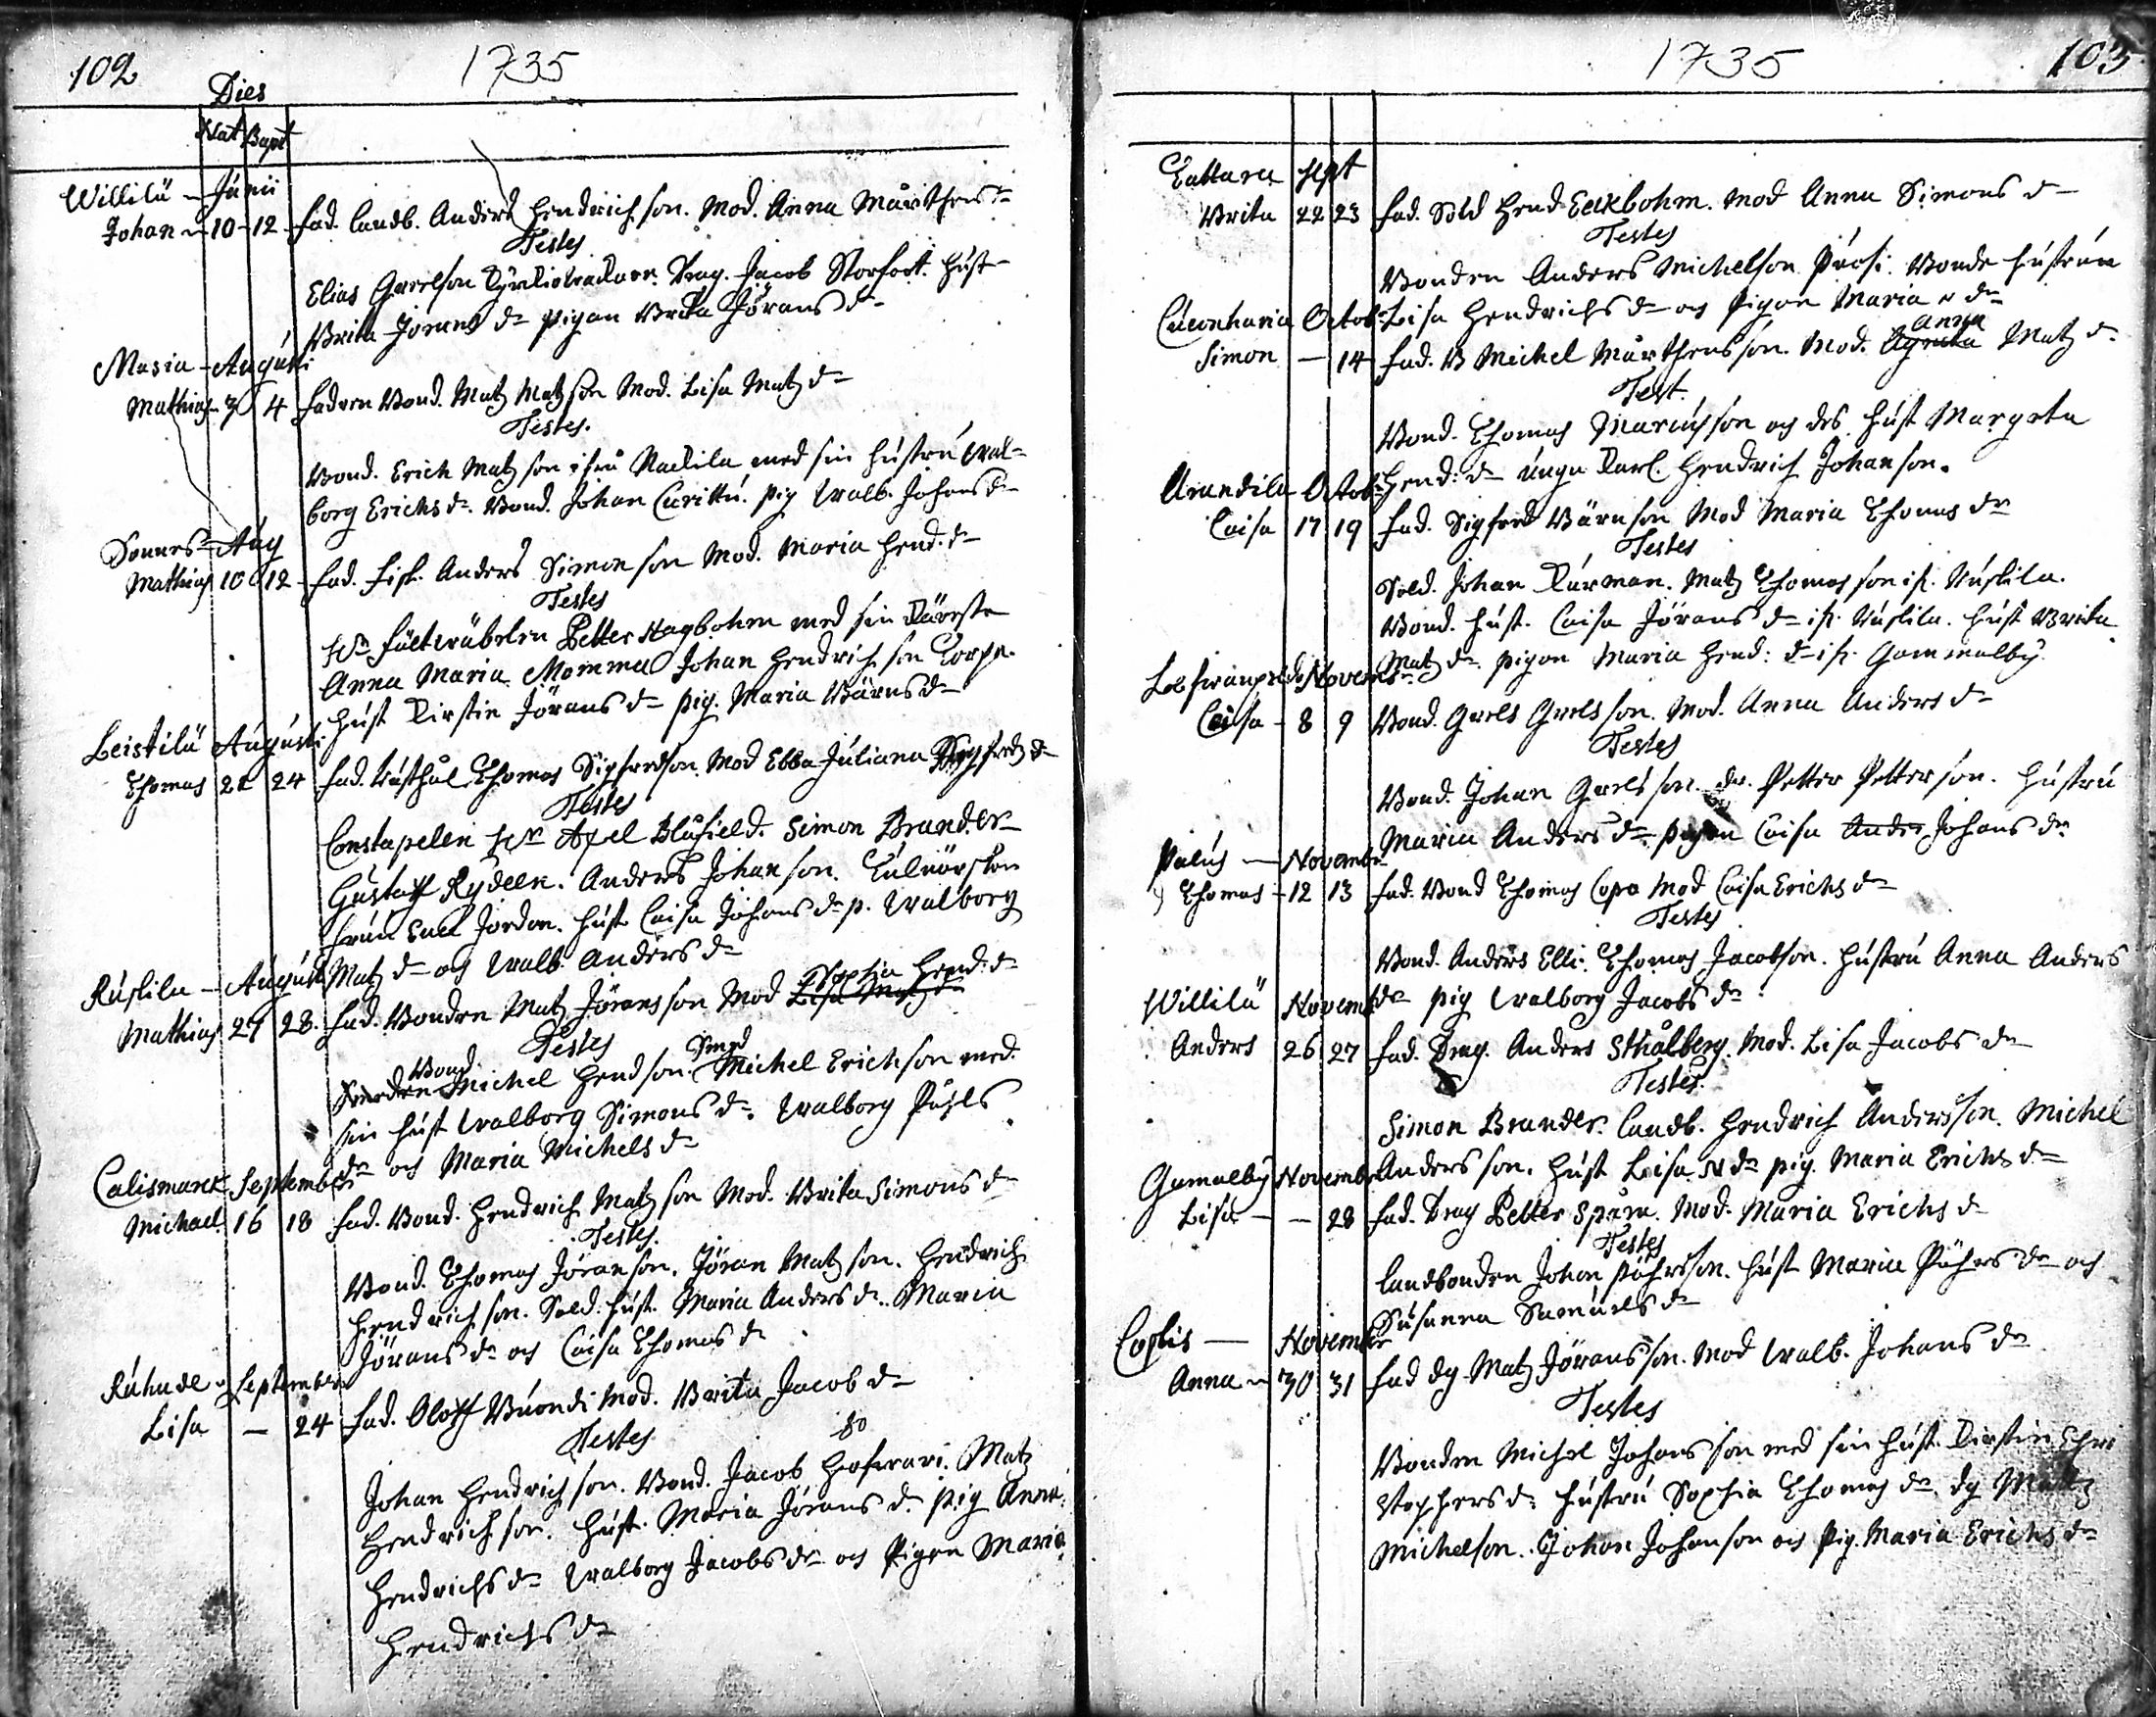 102
1735
Dies
Nat Bapt
Willilä - Junii
Johan - 10 - 12 fad. landb. Anders Hendrichson. Mod. Anna Mårthens dr
Testes
Elias Grelson Drag. Jacob Storfort. hust
Brita Jörans dr pigan Brita Jörans dr
Masia - Augusti
Mathias - 3 4 fadren Bond. Matz Matzson Mod. Lisa Matz dr
Testes.
Bond. Erich Matzson ifrå med sin hustru Wal-
borg Erichs dr. Bond. Johan Curittu. pig Walb. Johans dr
Sonnes - Aug
Mathias 10 12 fad. Fisk. Anders Simonson Mod. Maria Hend. dr
Testes
Hr Fältwäbelen Petter Hagbohm med sin Käreste
Anna Maria Momma Johan Hendrichson Torpa.
hust Kirstin Jörans dr pig. Maria Bärns dr
Leistilä Augusti
Thomas 21 24 fad. Thomas Sigfredson. Mod Ebba Juliana Sigfredz dr
Testes
Constapelen Hr Axel Blåfield. Simon Brander
Gustaff Rydeen. Anders Johanson.
frun Eua Jordan. hust Caisa Johans dr p. Walborg
Matz dr och Walb. Anders dr
Ruskila - August
Sophia Hend. dr
Mathias 27 28. fad. Bonden Matz Jöransson Mod Lisa Matz dr
Testes
Bond Smed
Smeden Michel Hendson. Michel Erichson med
sin hust Walborg Simons dr. Walborg Påhls
dr och Maria Michels dr
Calismarck September
Michael 16 18 fad. Bond. Hendrich Matzson Mod. Brita Simons dr
Testes.
Bond. Thomas Jöranson. Jöran Matzson. Hendrich
Hendrichson. Sold. hust. Maria Anders dr. Maria
Jörans dr och Caisa Thomas dr
Ruhade September
Lisa - 24 fad. Oloff Buondi Mod. Brita Jacob dr
Testes
Johan Hendrichson. Bond. Jacob Matz
Hendrichson. hust. Maria Jörans dr pig Anna
Hendrichs dr Walborg Jacobs dr och Pigan Maria
Hendrichs dr
1735
103
Cattara Sept
Brita 22 23 fad. Sold Hend Eekbohm. Mod Anna Simons dr
Testes
Bonden Anders Michelson Prosi. Bonde hustrun
Lisa Hendrichs dr och Pigan Maria N dr
Cuconharia Octob
Anna
Simon - 14 fad. B Michel Mårthensson. Mod. Agneta Matz dr
Test.
Bond. Thomas Marcusson och des hust Margeta
Hend. dr unga Karl. Hendrich Johanson.
Anundila Octob
Caisa 17 19 fad. Sigfred Bärnson Mod Maria Thomas dr
Testes
Sold. Johan Durman. Matz Thomasson if. Ruskila.
Bond. hust. Caisa Jörans dr if. Ruskila. hust Brita
Matz dr. pigan Maria Hend. dr if. Gammalby
Novemb
Caisa - 8 9 Bond. Grels Grelsson. Mod. Anna Anders dr
Testes
Bond. Johan Grelsson. dr. Petter Petterson. hustru
Maria Anders dr. pigan Caisa Anders Johans dr
Palus - Novembr
Thomas - 12 13 fad. Bond Thomas Copa Mod Caisa Erichs dr
Testes
Bond. Anders Elli. Thomas Jacobson. hustru Anna Anders
dr pig Walborg Jacobs dr
Willilä Novemb
Anders 26 27 fad. Drag. Anders Sthålberg. Mod. Lisa Jacobs dr
Testes.
Simon Brander. landb. Hendrich Andersson. Michel
Andersson. hust Lisa N dr pig. Maria Erichs dr
Gamalby Novembr
Lisa - - 28 fad. Drag Petter Spåra. Mod. Maria Erichs dr
Testes
landbonden Johan Påhrsson. hust Maria Påhrs dr och
Susanna Samuels dr
Coskis - November
Anna - 30 31 fad dg Matz Jöransson. Mod Walb. Johans dr
Testes
Bonden Michel Johansson med sin hust. Kirstin Chri
stophers dr hustru Sophia Thomas dr. dg Mattz
Michelson. Johan Johanson och pig. Maria Erichs dr